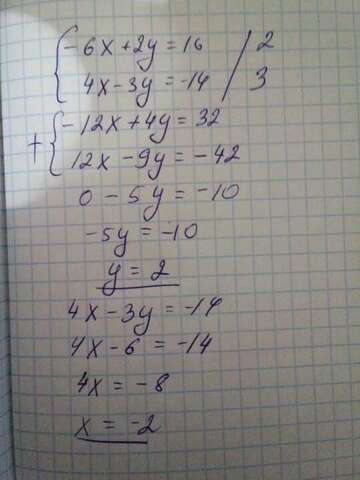 -6x+2y=16 / 2
4x-3y=-14 / 3
+ -12x+4y=32
12x-9y=-42
0-5y=-10
-5y=-10
y=2
4x-3y=-14
4x-6=-14
4x=-8
x=-2